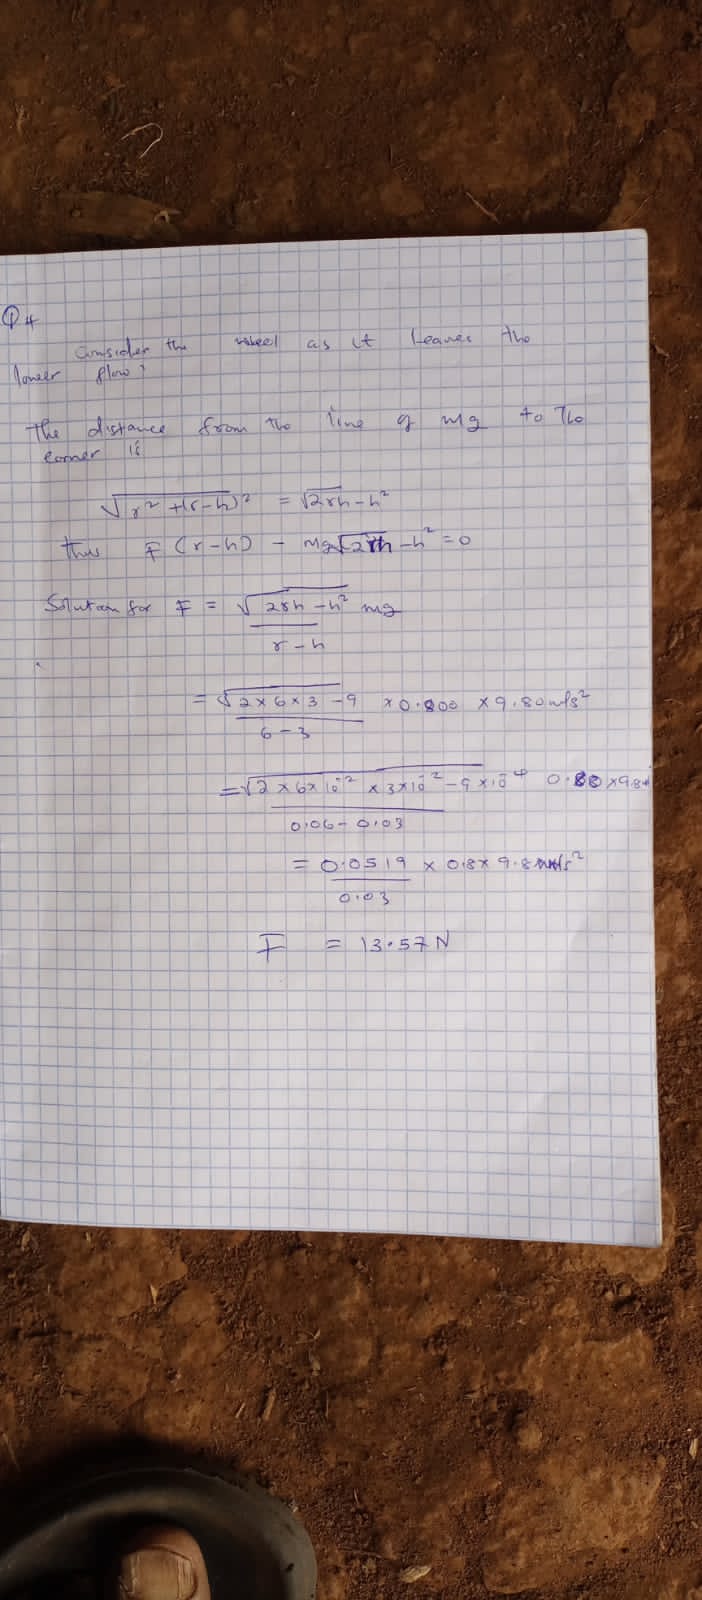 Q4
Consider the wheel as it leaves the
lower floor
The distance from the line of mg to the
corner is
√r² +(r-h)² = √2rh-h²
thus F (r-h) - mg√2rh-h² = 0
Solution for F = √2rh-h² mg
r-h
= √2×6×3-9 ×0.800 ×9.80m/s²
6-3
= √2×6×10⁻² ×3×10⁻²-9×10⁻⁴ 0.80×9.8
0.06-0.03
= 0.0519 × 0.8×9.8m/s²
0.03
F = 13.57N